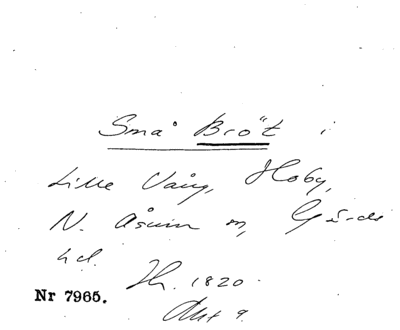 Små Bröt i
Lille Vång, Hoby,
N. Åsum sn, Gärds
hd. Th. 1820.
Nr 7965.
Akt 9.